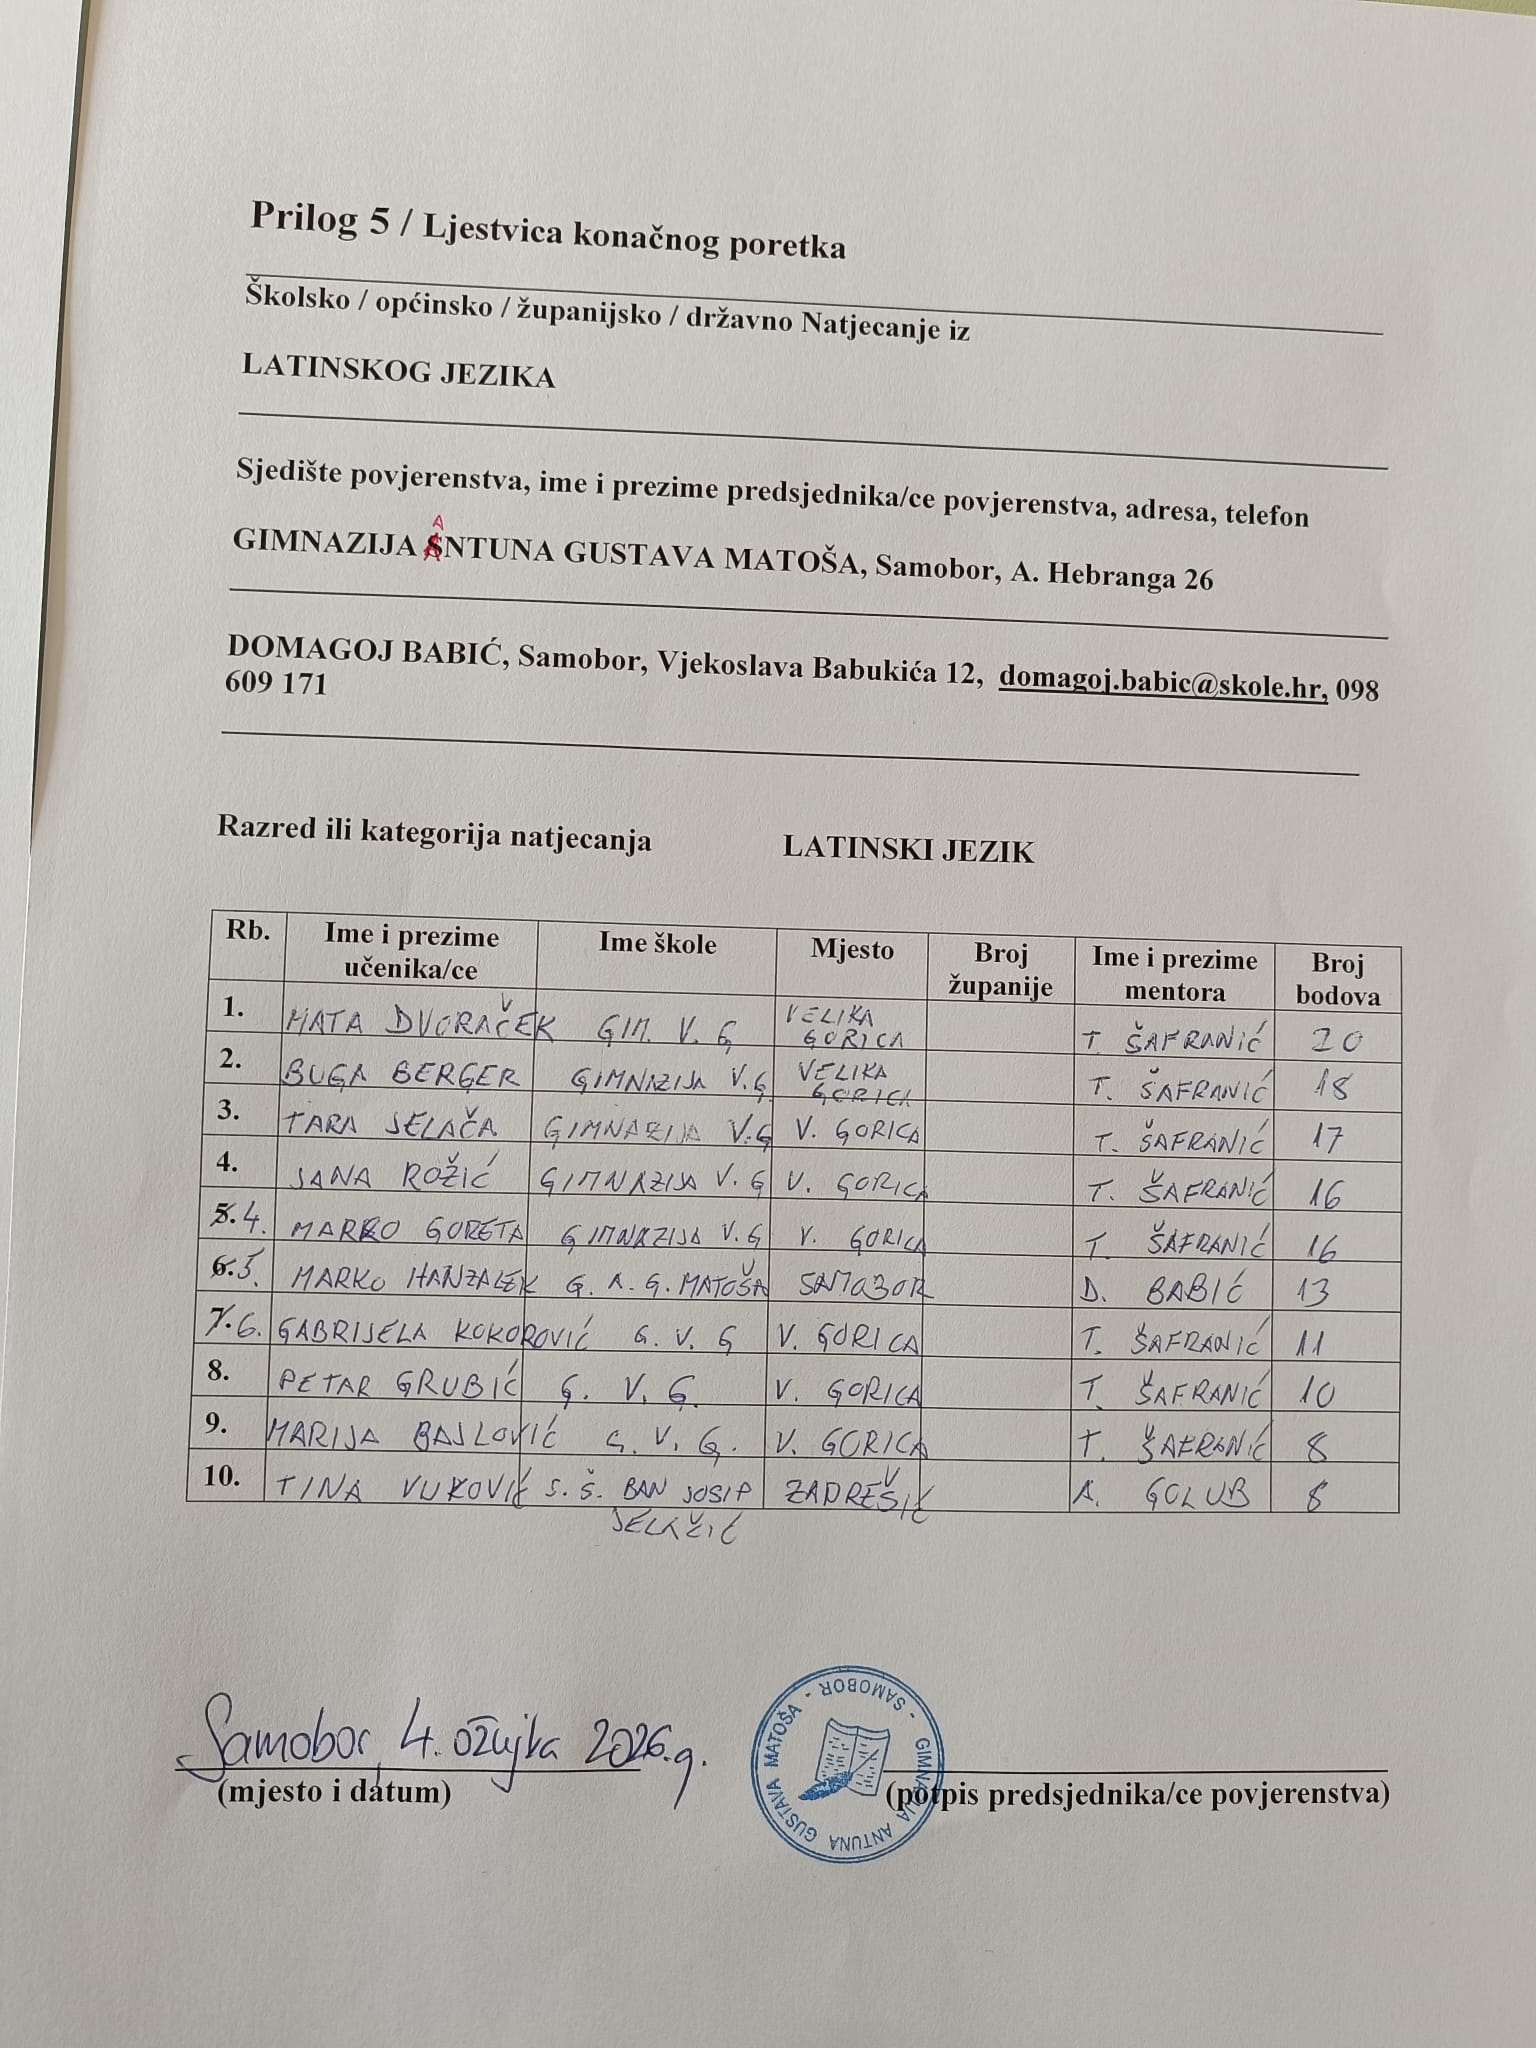 Prilog 5 / Ljestvica konačnog poretka
Školsko / općinsko / županijsko / državno Natjecanje iz
LATINSKOG JEZIKA
Sjedište povjerenstva, ime i prezime predsjednika/ce povjerenstva, adresa, telefon
GIMNAZIJA ANTUNA GUSTAVA MATOŠA, Samobor, A. Hebranga 26
DOMAGOJ BABIĆ, Samobor, Vjekoslava Babukića 12, domagoj.babic@skole.hr, 098
609 171
Razred ili kategorija natjecanja LATINSKI JEZIK
Rb. Ime i prezime učenika/ce Ime škole Mjesto Broj županije Ime i prezime mentora Broj bodova
1. MATA DVORAČEK GIM. V. G VELIKA GORICA T. ŠAFRANIĆ 20
2. BUGA BERGER GIMNAZIJA V.G VELIKA GORICA T. ŠAFRANIĆ 18
3. TARA JELAČA GIMNAZIJA V.G V. GORICA T. ŠAFRANIĆ 17
4. JANA ROŽIĆ GIMNAZIJA V. G V. GORICA T. ŠAFRANIĆ 16
5. 4. MARKO GORETA GIMNAZIJA V. G V. GORICA T. ŠAFRANIĆ 16
6. 5. MARKO HANZALEK G. A. G. MATOŠA SAMOBOR D. BABIĆ 13
7. 6. GABRIJELA KOKOROVIĆ G. V. G V. GORICA T. ŠAFRANIĆ 11
8. PETAR GRUBIĆ G. V. G. V. GORICA T. ŠAFRANIĆ 10
9. MARIJA BAJLOVIĆ G. V. G. V. GORICA T. ŠAFRANIĆ 8
10. TINA VUKOVIĆ S. Š. BAN JOSIP JELAČIĆ ZAPREŠIĆ A. GOLUB 8
Samobor, 4. ožujka 2026.g.
(mjesto i datum) (potpis predsjednika/ce povjerenstva)
GIMNAZIJA ANTUNA GUSTAVA MATOŠA - SAMOBOR -